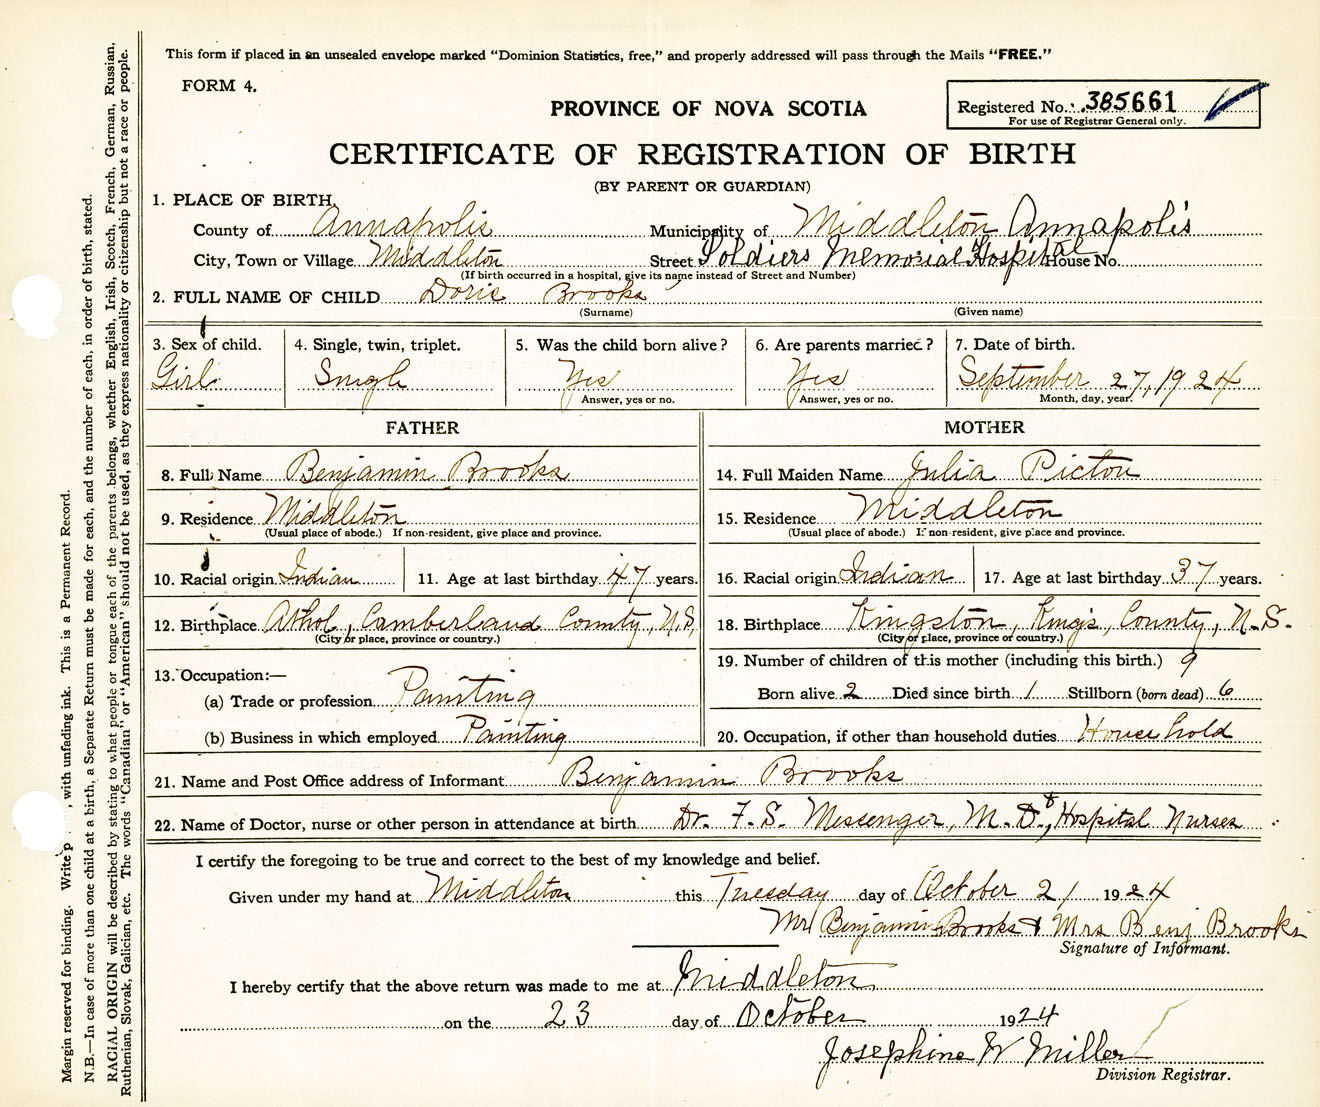 This form if placed in an unsealed envelope marked "Dominion Statistics, free," and properly addressed will pass through the Mails "FREE."
FORM 4.
PROVINCE OF NOVA SCOTIA
Registered No. 385661
For use of Registrar General only.
CERTIFICATE OF REGISTRATION OF BIRTH
(BY PARENT OR GUARDIAN)
1. PLACE OF BIRTH,
County of Annapolis Municipality of Middleton Annapolis
City, Town or Village Middleton Street Soldiers Memorial Hospital House No.
(If birth occurred in a hospital, give its name instead of Street and Number)
2. FULL NAME OF CHILD Doris Brooks
(Surname) (Given name)
3. Sex of child. 4. Single, twin, triplet. 5. Was the child born alive? 6. Are parents married? 7. Date of birth.
Girl Single Yes Yes September 27, 1924
Answer, yes or no. Answer, yes or no. Month, day, year.
FATHER MOTHER
8. Full Name Benjamin Brooks 14. Full Maiden Name Julia Picton
9. Residence Middleton 15. Residence Middleton
(Usual place of abode.) If non-resident, give place and province. (Usual place of abode.) If non-resident, give place and province.
10. Racial origin Indian 11. Age at last birthday 47 years. 16. Racial origin Indian 17. Age at last birthday 37 years.
12. Birthplace Athol, Cumberland County, N.S, 18. Birthplace Kingston, King's, County, N.S.
(City or place, province or country.) (City or place, province or country.)
13. Occupation:—
(a) Trade or profession Painting
(b) Business in which employed Painting
19. Number of children of this mother (including this birth.) 9
Born alive 2 Died since birth 1 Stillborn (born dead) 6
20. Occupation, if other than household duties Household
21. Name and Post Office address of Informant Benjamin Brooks
22. Name of Doctor, nurse or other person in attendance at birth Dr. F. S. Messenger, M.D., & Hospital Nurses
I certify the foregoing to be true and correct to the best of my knowledge and belief.
Given under my hand at Middleton this Tuesday day of October 21 1924
Mr Benjamin Brooks & Mrs Benj Brooks
Signature of Informant.
I hereby certify that the above return was made to me at Middleton
on the 23 day of October 1924
Josephine W Miller
Division Registrar.
Margin reserved for binding. Write p , with unfading ink. This is a Permanent Record.
N.B.—In case of more than one child at a birth, a Separate Return must be made for each, and the number of each, in order of birth, stated.
RACIAL ORIGIN will be described by stating to what people or tongue each of the parents belongs, whether English, Irish, Scotch, French, German, Russian,
Ruthenian, Slovak, Galician, etc. The words "Canadian" or "American" should not be used, as they express nationality or citizenship but not a race or people.